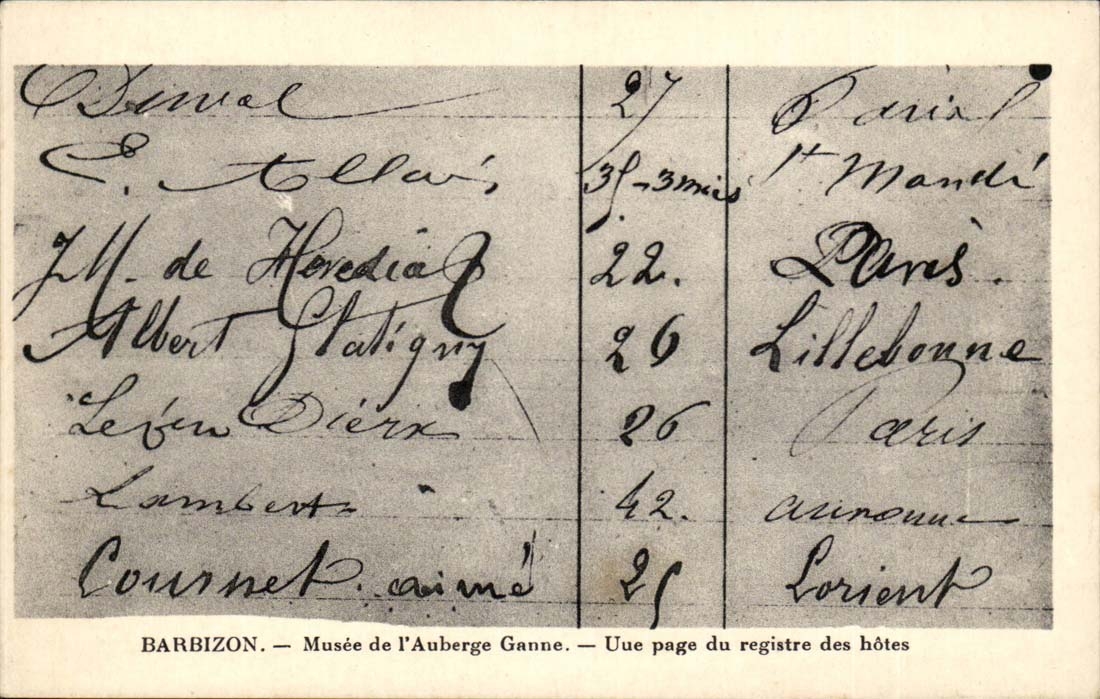 27 Paris
E. Allais 35-3 mois St Mandé
JM. de Heredia 22. Paris.
Albert Glatigny 26 Lillebonne
Diérx 26 Paris
Lambert 42.
Cournet. aimé 25 Lorient
BARBIZON. — Musée de l'Auberge Ganne. — Uue page du registre des hôtes